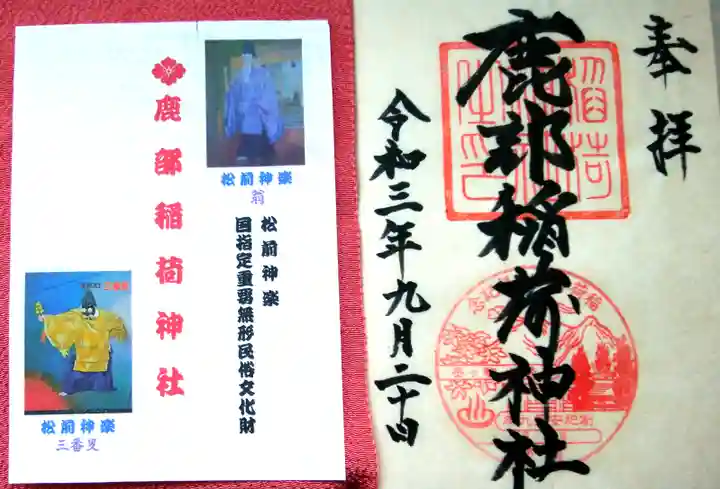 奉拝
鹿部稲荷神社
令和三年九月二十日
松前神楽
翁
松前神楽
国指定重要無形民俗文化財
鹿部稲荷神社
三番叟
松前神楽
三番叟